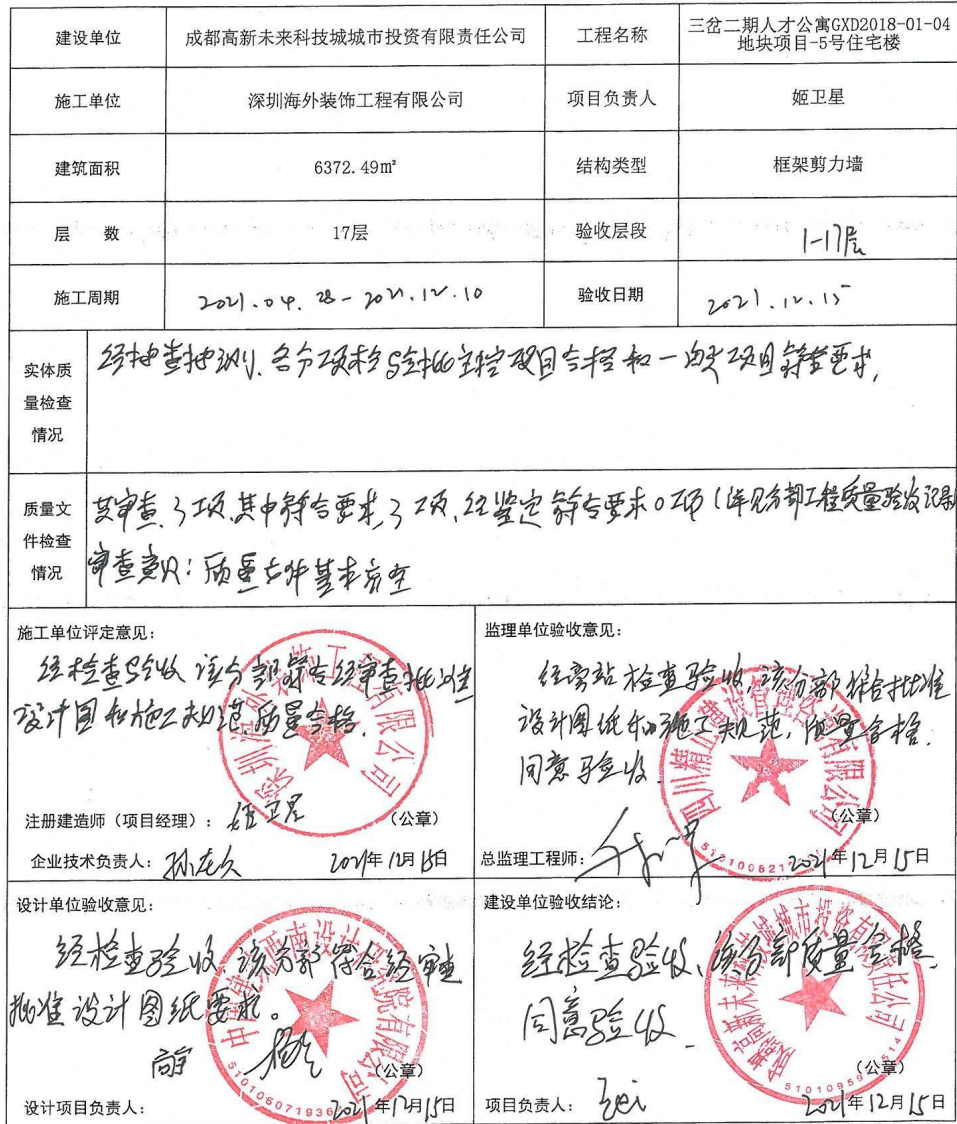 建设单位 成都高新未来科技城城市投资有限责任公司 工程名称 三岔二期人才公寓GXD2018-01-04
地块项目-5号住宅楼
施工单位 深圳海外装饰工程有限公司 项目负责人 姬卫星
建筑面积 6372.49m² 结构类型 框架剪力墙
层 数 17层 验收层段 1-17层
施工周期 2021.04.28-2021.12.10 验收日期 2021.12.15
实体质
量检查
情况
经抽查抽测,各分项检验批主控项目合格和一般项目符合要求,
质量文
件检查
情况
共审查3项,其中符合要求3项,经鉴定符合要求0项(详见分部工程质量验收记录)
审查意见:质量文件基本齐全
施工单位评定意见:
经检查验收 该分部符合经审查批准
设计图和施工规范,质量合格.
深圳海外装饰工程有限公司
注册建造师(项目经理): 姬卫星 (公章)
企业技术负责人: 2021年12月15日
监理单位验收意见:
经旁站检查验收,该分部符合批准
设计图纸和施工规范,质量合格.
同意验收.
(公章)
总监理工程师: 2021年12月15日
设计单位验收意见:
经检查验收,该分部符合经审查
批准设计图纸要求。
中国建筑西南设计研究院有限公司
510106071936
(公章)
设计项目负责人: 2021年12月15日
建设单位验收结论:
经检查验收、该分部质量合格,
同意验收.
成都高新未来科技城城市投资有限责任公司
(公章)
项目负责人: 2021年12月15日